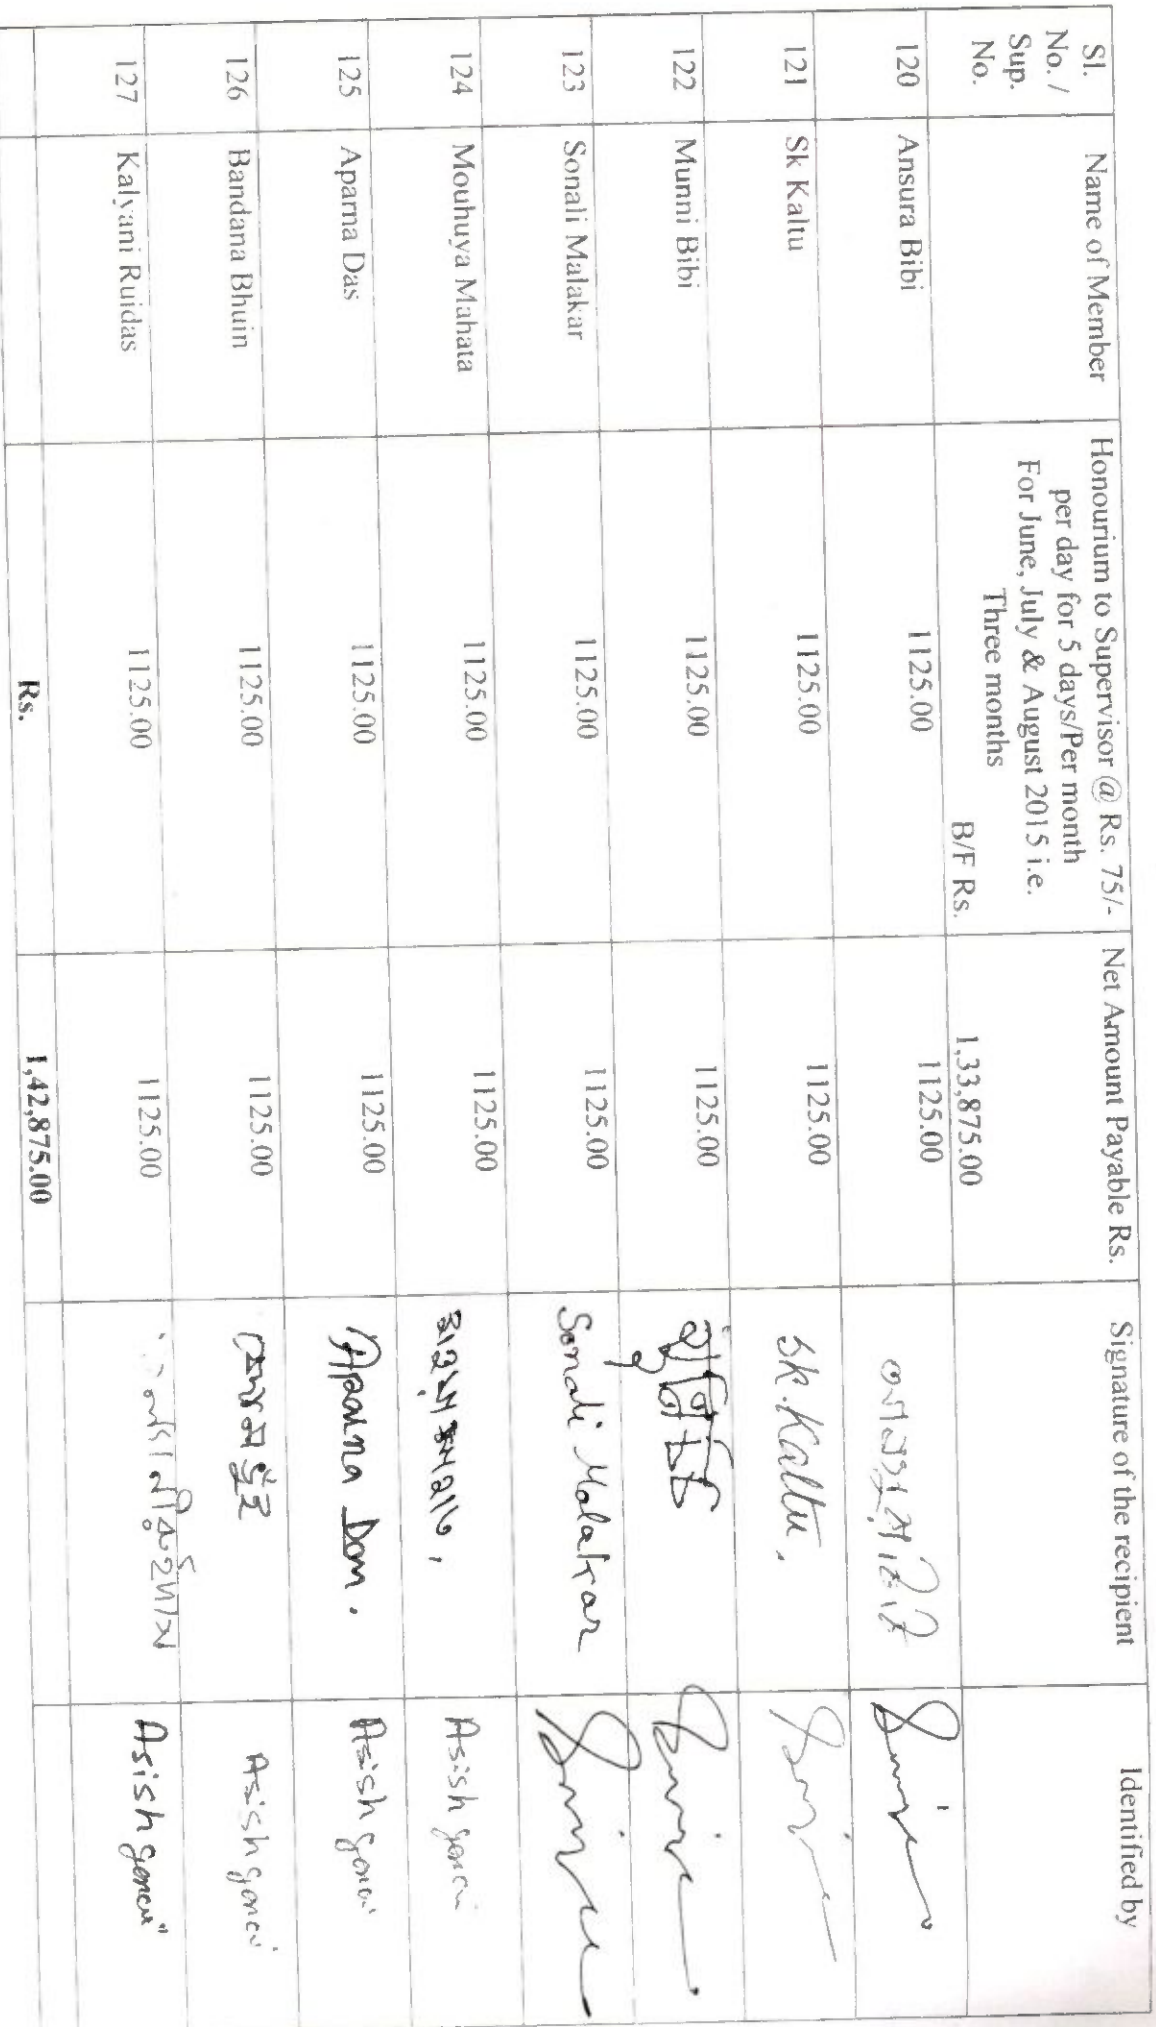 Sl. No. / Sup. No.
Name of Member
Honourium to Supervisor @ Rs. 75/-
per day for 5 days/Per month
For June, July & August 2015 i.e.
Three months
B/F Rs.
Net Amount Payable Rs.
1,33,875.00
Signature of the recipient
Identified by
120 Ansura Bibi 1125.00 1125.00
121 Sk Kaltu 1125.00 1125.00 Sk. Kaltu,
122 Munni Bibi 1125.00 1125.00
123 Sonali Malakar 1125.00 1125.00 Sonali Malakar
124 Mouhuya Mahata 1125.00 1125.00 Asish gorai
125 Aparna Das 1125.00 1125.00 Aparna Dom. Asish gorai
126 Bandana Bhuin 1125.00 1125.00 Asish gorai
127 Kalyani Ruidas 1125.00 1125.00 Asish gorai
Rs. 1,42,875.00